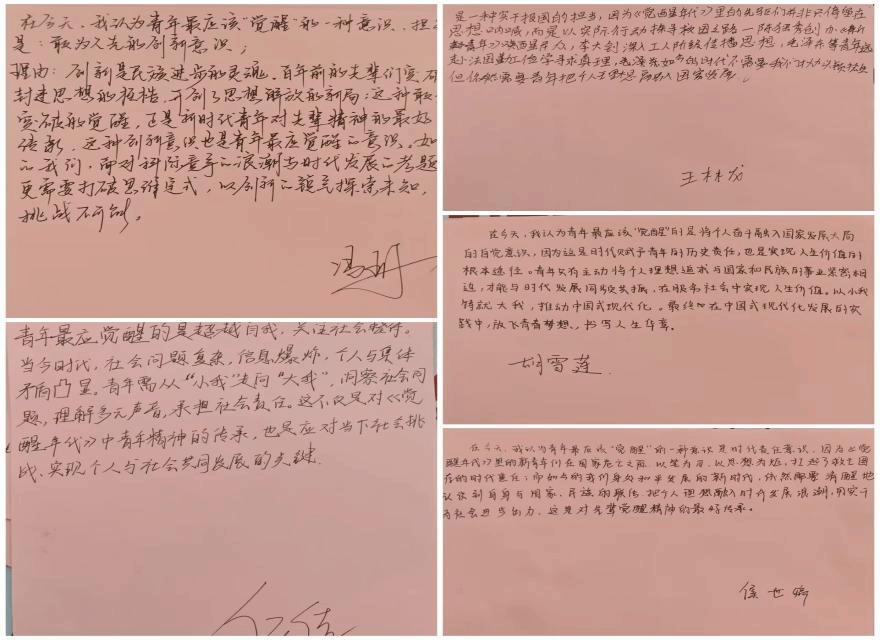 在今天,我认为青年最应该“觉醒”的一种意识、担
是:敢为人先的创新意识;
理由:创新是民族进步的灵魂。百年前的先辈们突破
封建思想的桎梏,开创了思想解放的新局;这种敢
突破的觉醒,正是新时代青年对先辈精神的最好
传承,这种创新意识也是青年最应觉醒的意识。如
的我们,面对科际竞争的浪潮与时代发展的考题
更需要打破思维定式,以创新的锐气探索未知,
挑战不可能。
冯
青年最应觉醒的是超越自我,关注社会整体。
当今时代,社会问题复杂,信息爆炸,个人与集体
矛盾凸显。青年需从“小我”走向“大我”,洞察社会问
题,理解多元声音,承担社会责任。这不仅是对《觉
醒年代》中青年精神的传承,也是应对当下社会挑
战、实现个人与社会共同发展的关键。
是一种实干报国的担当,因为《觉醒年代》里的先驱们并非只停留在
思想呐喊,而是以实际行动探寻救国之路—陈独秀创办《新
青年》唤醒民众,李大钊深入工人阶级传播思想,毛泽东等青年远
赴法国勤工俭学寻求真理,
但依然需要青年把个人融入国家发展。
王林龙
在今天,我认为青年最应该“觉醒”的是将个人奋斗融入国家发展大局
的自觉意识,因为这是时代赋予青年的历史责任,也是实现人生价值的
根本途径。青年只有主动将个人理想追求与国家和民族的事业紧密相
连,才能与时代发展同频共振,在服务社会中实现人生价值。以小我
铸就大我,推动中国式现代化。最终也在中国式现代化发展的实
践中,放飞青春梦想、书写人生华章。
胡雪莲
在今天,我认为青年最应该“觉醒”的一种意识是时代责任意识,因为《觉
醒年代》里的新青年们在国家危亡之际,以笔为刃、以思想为炬,扛起了救亡图
存的时代重任;而如今的我们身处和平发展的新时代,依然需要清醒地
认识到自身与国家、民族的联结,把个人理想融入时代发展浪潮,用实干
为社会进步出力,这是对先辈觉醒精神的最好传承。
侯世婷